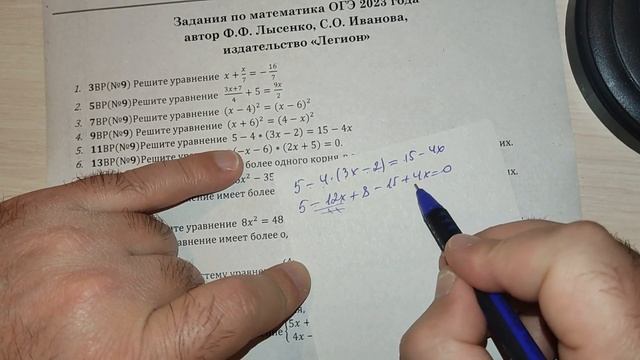 Задания по математика ОГЭ 2023 года
автор Ф.Ф. Лысенко, С.О. Иванова,
издательство «Легион»
1. 3ВР(№9) Решите уравнение x + x/7 = −16/7
2. 5ВР(№9)Решите уравнение (3x+7)/4 + 5 = 9x/2
3. 7ВР(№9) Решите уравнение (x − 4)² = (x − 6)²
4. 9ВР(№9) Решите уравнение (x + 6)² = (4 − x)²
5. 11ВР(№9)Решите уравнение 5 − 4 • (3x − 2) = 15 − 4x
6. 13ВР(№9) Решите (−x − 6) • (2x + 5) = 0.
более одного корня их.
8x² − 35
имеет более их.
уравнение 8x² = 48
уравнение имеет более о,
систему уравне
5x +
4x −
5 − 4·(3x − 2) = 15 − 4x
5 − 12x + 8 − 15 + 4x = 0